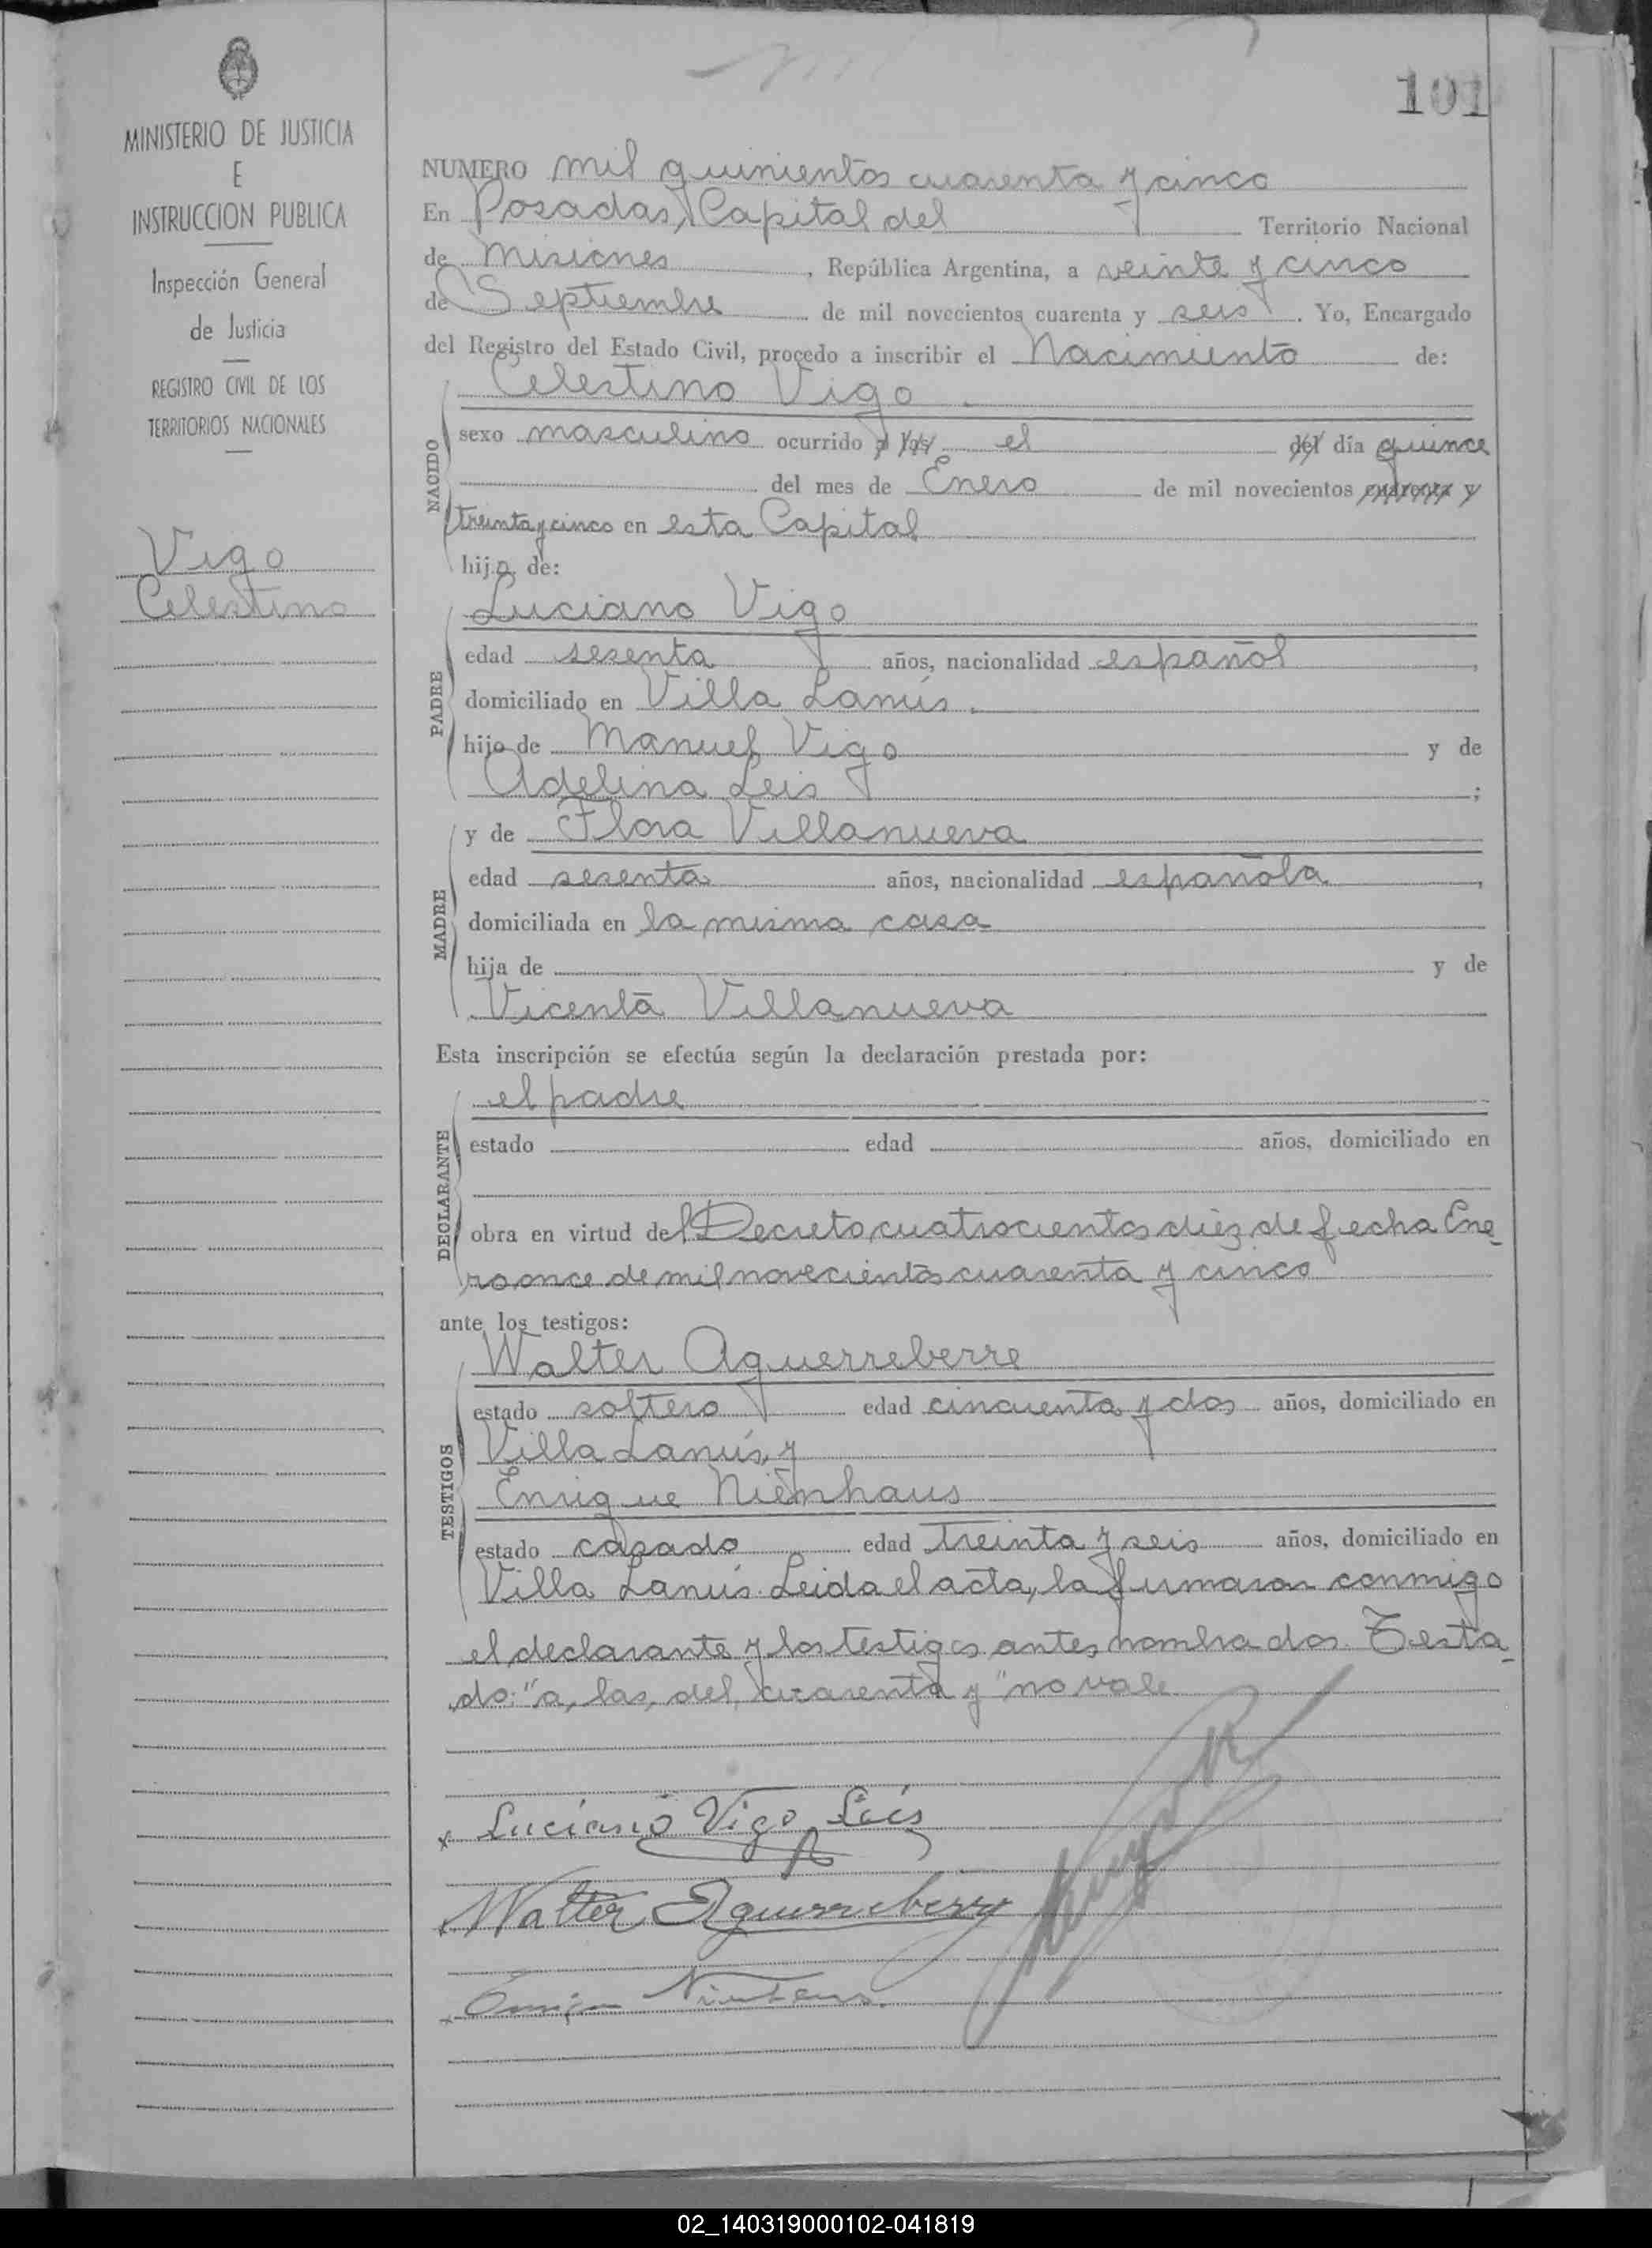 MINISTERIO DE JUSTICIA
E
INSTRUCCION PUBLICA
Inspección General
de Justicia
REGISTRO CIVIL DE LOS
TERRITORIOS NACIONALES
Vigo
Celestino
101
NUMERO mil quinientos cuarenta y cinco
En Posadas, Capital del Territorio Nacional
de Misiones, República Argentina, a veinte y cinco
de Septiembre de mil novecientos cuarenta y seis. Yo, Encargado
del Registro del Estado Civil, procedo a inscribir el Nacimiento de:
Celestino Vigo
NACIDO
sexo masculino ocurrido a las el del día quince
del mes de Enero de mil novecientos cuarenta y
treinta y cinco en esta Capital
hijo de:
PADRE
Luciano Vigo
edad sesenta años, nacionalidad español,
domiciliado en Villa Lanús.
hijo de Manuel Vigo y de
Adelina Leis;
MADRE
y de Flora Villanueva
edad sesenta años, nacionalidad española,
domiciliada en la misma casa
hija de y de
Vicenta Villanueva
Esta inscripción se efectúa según la declaración prestada por:
DECLARANTE
el padre
estado edad años, domiciliado en
obra en virtud del Decreto cuatrocientos diez de fecha Ene-
ro once de mil novecientos cuarenta y cinco
ante los testigos:
TESTIGOS
Walter Aguerreberre
estado soltero edad cincuenta y dos años, domiciliado en
Villa Lanús, y
Enrique Nienhaus
estado casado edad treinta y seis años, domiciliado en
Villa Lanús. Leida el acta, la firmaron conmigo
el declarante y los testigos antes nombrados. Testa-
do: "a, las, del, cuarenta y" no vale
x Luciano Vigo Leis
x Walter Aguerreberry
x Enrique Nienhaus.
02_140319000102-041819